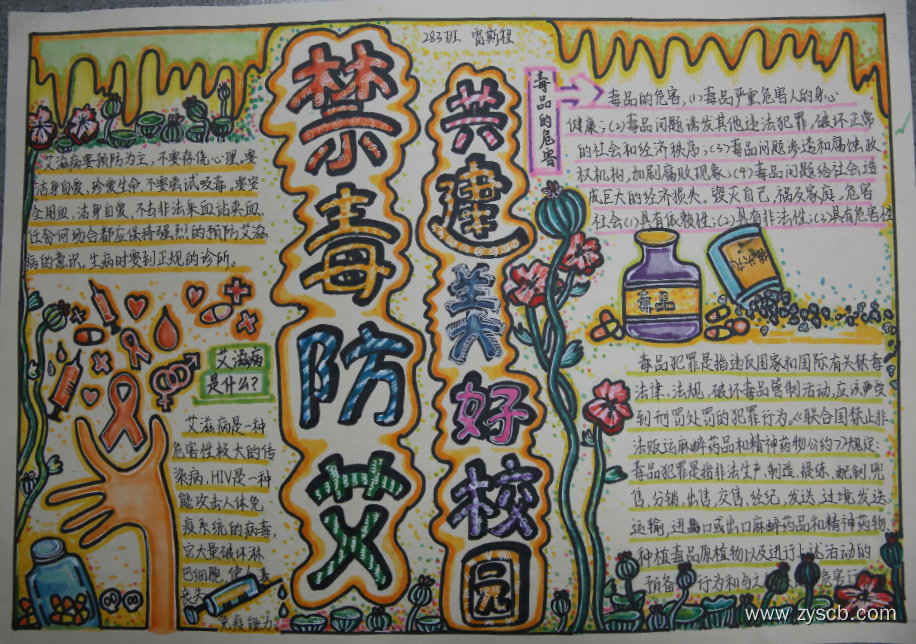 283班 雷斯程
禁毒防艾
共建美好校园
艾滋病要预防为主,不要存侥心理,要
洁身自爱,珍爱生命,不要尝试吸毒,要安
全用血,洁身自爱,不去非法采血站卖血,
任合何场合都应保持强烈的预防艾滋
病的意识。生病时要到正规的诊所。
艾滋病
是什么?
艾滋病是一种
危害性极大的传
染病,HIV是一种
能攻击人体免
疫系统的病毒,
它大量破坏淋
巴细胞,使人
丧失
免疫能力
毒品的危害
毒品的危害,(1)毒品严重危害人的身心
健康;(2)毒品问题诱发其他违法犯罪,破坏正常
的社会和经济秩序;(3)毒品问题渗透和腐蚀政
权机构,加剧腐败现象;(4)毒品问题给社会造
成巨大的经济损失。毁灭自己,祸及家庭,危害
社会(1)具有依赖性;(2)具有非法性;(3)具有危害性
毒品
毒品犯罪是指违反国家和国际有关禁毒
法律、法规,破坏毒品管制活动,应该严受
到刑罚处罚的犯罪行为。《联合国禁止非
法贩运麻醉药品和精神药物公约》规定:
毒品犯罪是指非法生产、制造、提炼、配制、兜
售、分销、出售、交售、经纪、发送、过境发送、
运输、进口或出口麻醉药品和精神药物、
种植毒品原植物以及进行上述活动的
预备行为和与之
危害
www.zyscb.com